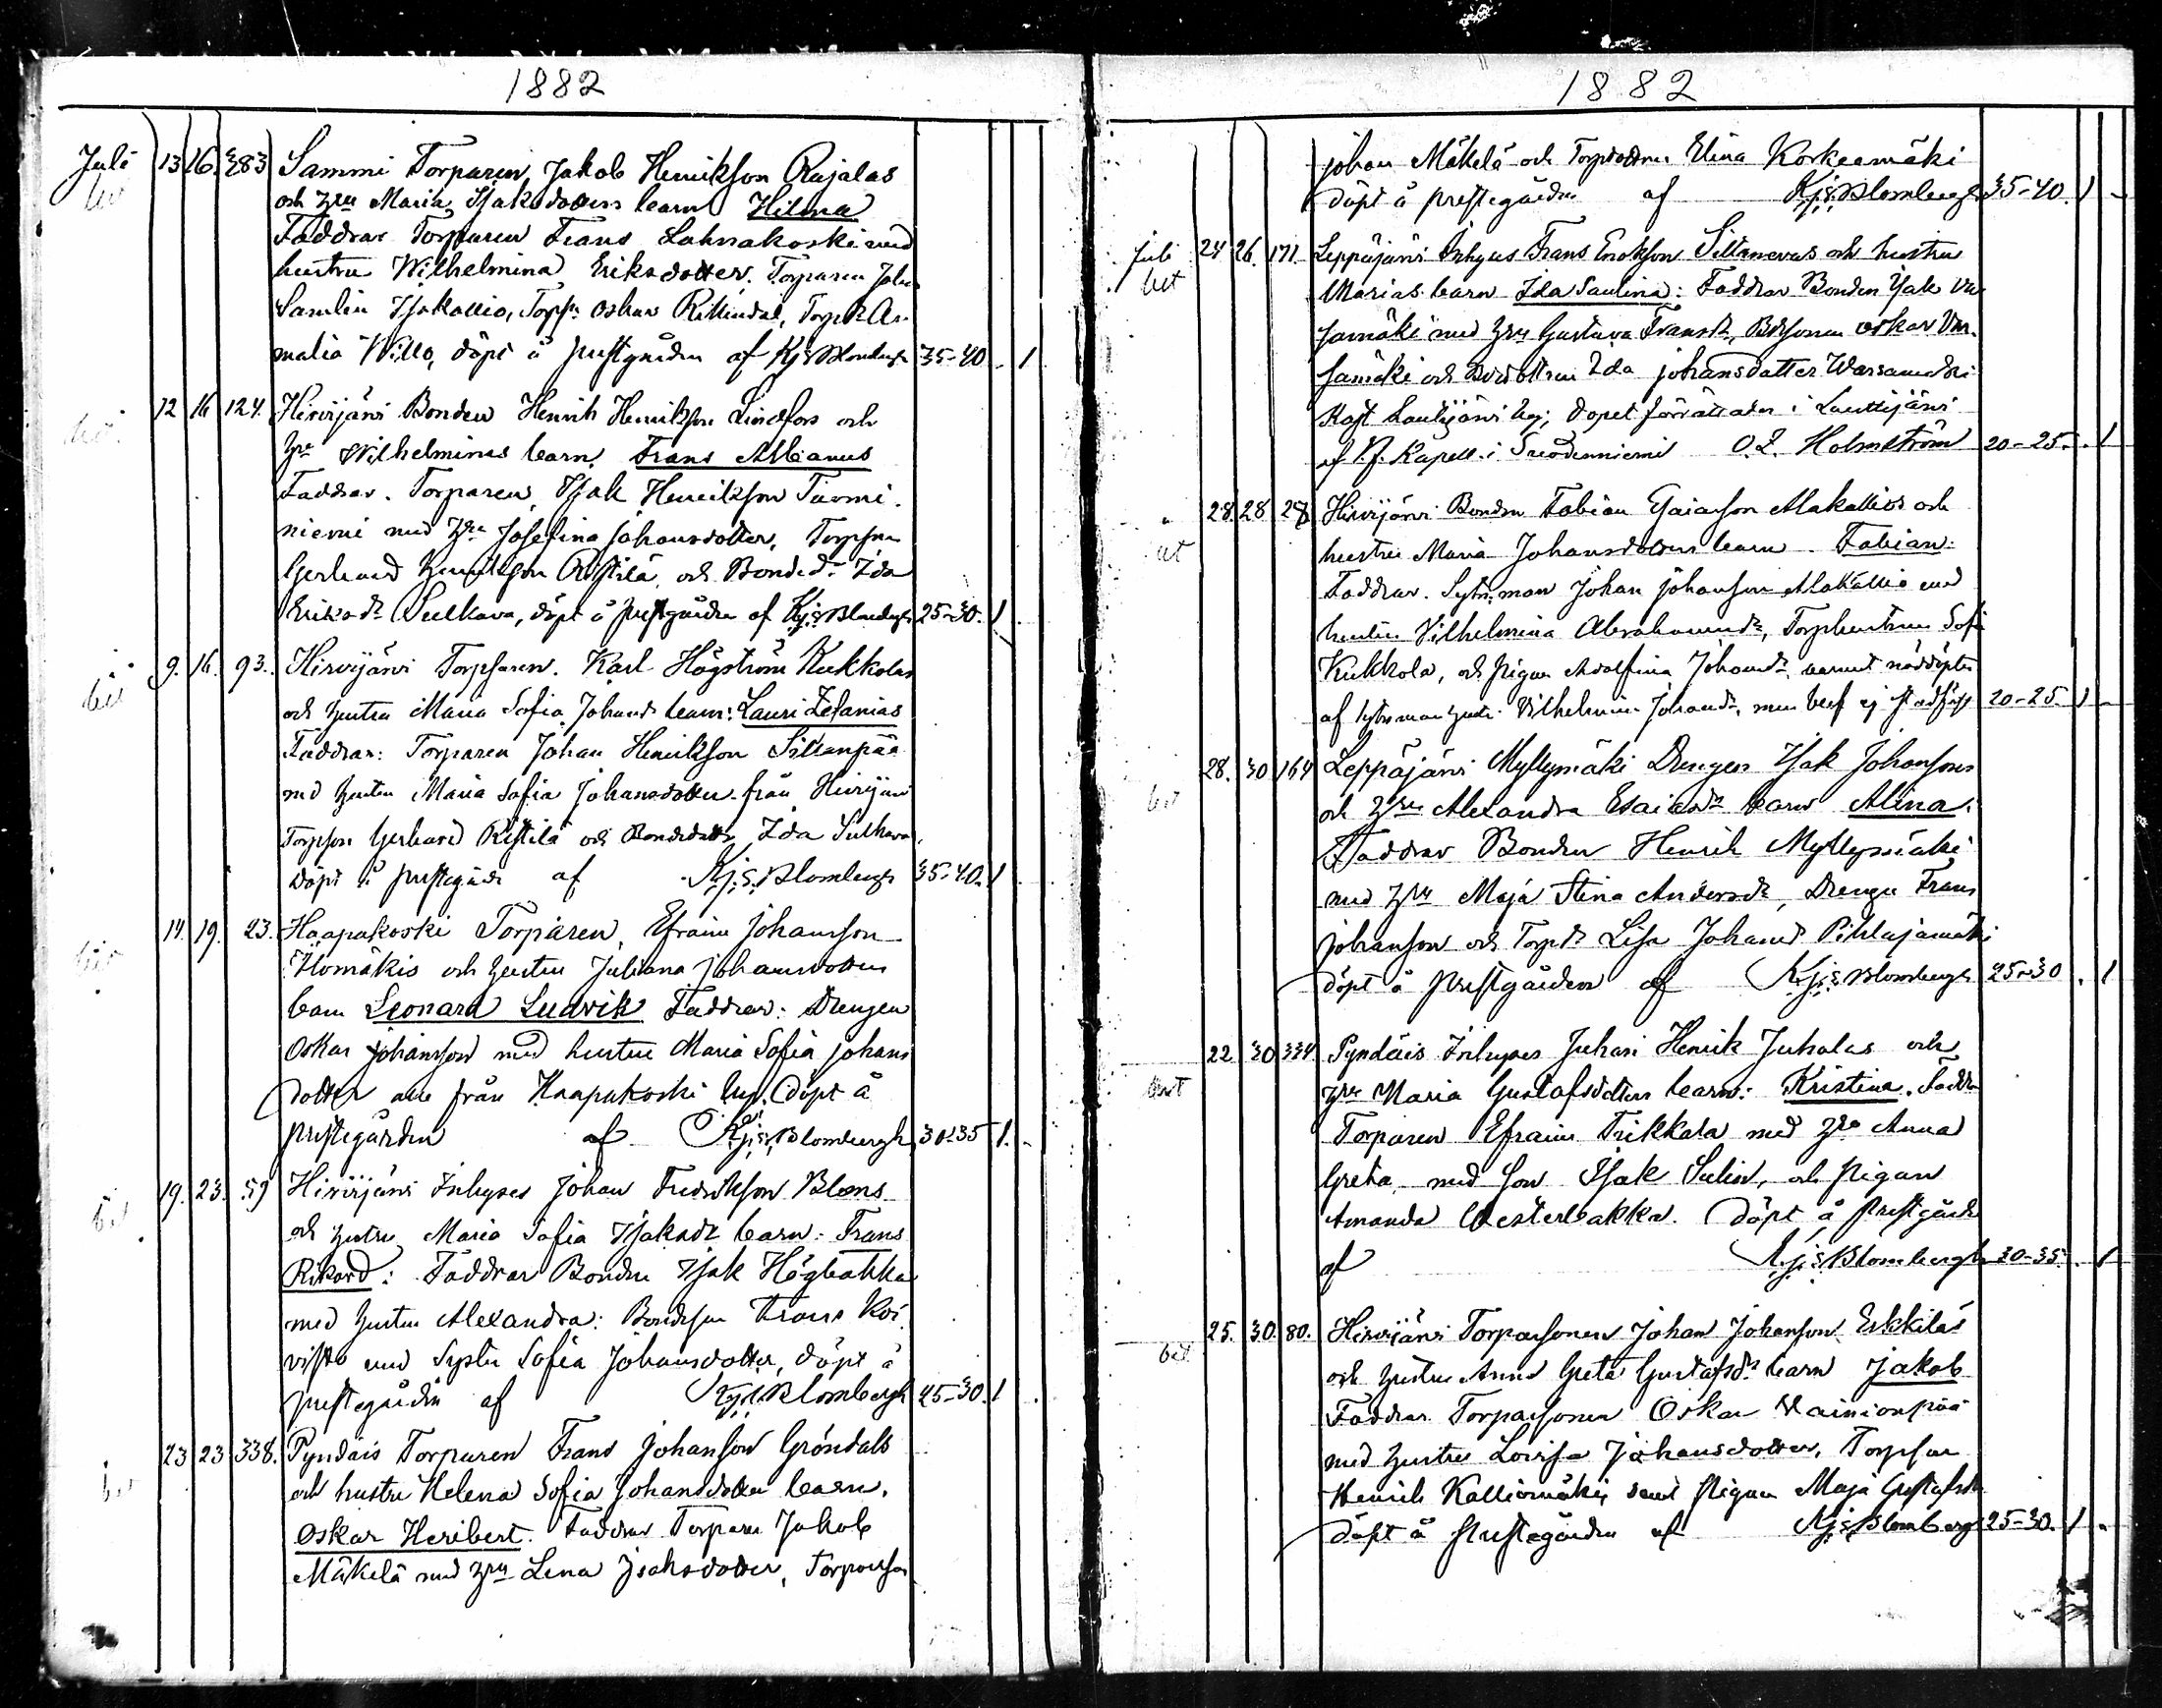 1882
Juli 13 16. 283 Sammi Torparen Jakob Henrikson Rajalas
bet och Hru Maria Isaksdotters barn Hilma
Faddrar Torparen Frans Lahnakoski med
hustru Wilhelmina Eriksdotter. Torparen Johan
Samlin Isokallio, Torpsn Oskar Rikkindal, TorpdR
malia Villo, döpt å prestgården af Kj: Blombergh 35-40. 1
bet. 12 16 124. Hirvijärvi Bonden Henrik Henrikson Lindfors och
Hru Wilhelminas barn. Frans Albanus
Faddrar. Torparen Isak Henrikson Tuomi-
niemi med Hru Josefina Johansdotter, Torpsn
Gerhard Henrikson Ristilä och Bonded. Ida
Eriksdr Sulkava, döpt å prestgården af Kj: Blombergh 25-30. 1
bet 9. 16. 93. Hirvijärvi Torparen. Karl Högström Kukkolas
och hustru Maria Sofia Johansdr barn: Lauri Zefanias
Faddrar: Torparen Johan Henrikson Sillanpää
med hustru Maria Sofia Johansdotter från Hirvijärvi
Torpson Gerhard Ristilä och Bondedottr Ida Sulkava,
döpt å prestegård af Kj: Blombergh 35-40. 1
bet 14. 19. 23. Haapakoski Torparen, Efraim Johansson
Homäkis och hustru Juliana Johansdotters
barn Leonard Ludvik Faddrar: Drengen
Oskar Johansson med hustru Maria Sofia Johans
dotter alla från Haapakoski by. Döpt å
prestegården af Kj: Blombergh 30-35 1.
bet 19. 23. 59 Hirvijärvi Inhyses Johan Fredrikson Bloms
och hustru Maria Sofia Isaksdr barn: Frans
Rikard: Faddrar Bonden Isak Högbakka
med hustru Alexandra: Bondeson Frans Koi
visto med Syster Sofia Johansdotter, döpt å
prestegården af Kj: Blombergh 25-30. 1
bet 23 23 338. Pyndäis Torparen Frans Johanson Gröndals
och hustru Helena Sofia Johansdotter barn.
Oskar Heribert. Faddrar Torparen Jakob
Mäkelä med Hru Lena Isaksdotter, Torparson
1882
Johan Mäkelä och Torpdottren Elina Korkeamäki
döpt å prestegården af Kj: Blombergh 35-40. 1
juli 24 26. 171. Leppäjärvi Inhyses Frans Enokson Sillanevas och hustru
bet Marias barn Ida Saulina: Faddrar Bonden Isak Var
samäki med Hru Gustava Fransdr, Bdsonen Oskar Var-
samäki och Bdsdottren Ida Johansdotter Warsamäki
af Lauttijärvi by; dopet förrättades i Lauttijärvi
af V. Kapell. i Suodenniemi O. L. Holmström 20-25. 1
bet 28. 28 28 Hirvijärvi Bonden Fabian Esaiason Alakallios och
hustru Maria Johansdotters barn. Fabian:
Faddrar. Sytn: man Johan Johanson Alakallio med
hustru Vilhelmina Abrahamsdr, Torphustrun Sofi
Kukkola, och Pigan Adolfina Johansdr barnet nöddöptes
af sytn man hustr. Vilhelmina Johansdr, men blef ej stadfäst 20-25. 1
bet 28. 30 164 Leppäjärvi Myllymäki Drengen Isak Johansons
och Hru Alexandra Esaiasdr barn Alina:
Faddrar Bonden Henrik Myllymäki
med Hru Maja Stina Andersdr, Drengen Frans
Johanson och Torpdr Lisa Johansd Pihlajamäki
döpt å prestgården af Kj: Blombergh 25-30. 1
bet 22 30 334 Pyndäis Inhyses Juhani Henrik Juhalas och
Hru Maria Gustafsdotters barn: Kristina. Faddr
Torparen Efraim Trikkala med Hru Anna
Greta med Son Isak Sulin, och Pigan
Amanda Westerbakka. Döpt å prestgården
af Kj: Blombergh 30-35. 1
bet 25. 30. 80. Hirvijärvi Torparsonen Johan Johanson Eskkiläs
och hustru Anna Greta Gustafsdr barn Jakob
Faddrar Torparsonen Oskar Vainionpää
med hustru Lovisa Johansdotter, Torpson
Henrik Kalliomäki samt Pigan Maja Gustafsdr
döpt å Prestegården af Kj: Blombergh 25-30. 1